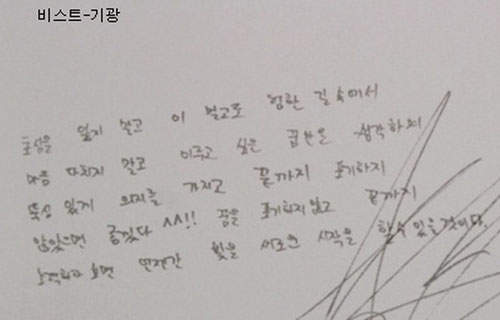 비스트-기광
초심을 잃지 않고 이 멀고도 험한 길 속에서
마음 다치지 말고 이루고 싶은 꿈만은 생각하며
뚝심 있게 의지를 가지고 끝까지 포기하지
않았으면 좋겠다 ^^!! 꿈을 포기하지 않고 끝까지
노력하다 보면 언젠간 빛을 새로운 시작을 할 수 있을 것이다.